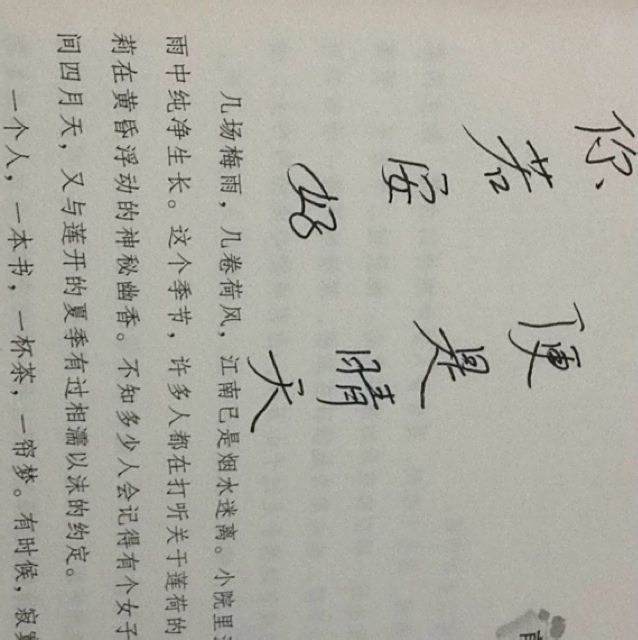 你若安好
便是晴天
几场梅雨，几卷荷风，江南已是烟水迷离。小院里
雨中纯净生长。这个季节，许多人都在打听关于莲荷的
莉在黄昏浮动的神秘幽香。不知多少人会记得有个女子
间四月天，又与莲开的夏季有过相濡以沫的约定。
一个人，一本书，一杯茶，一帘梦。有时候，寂